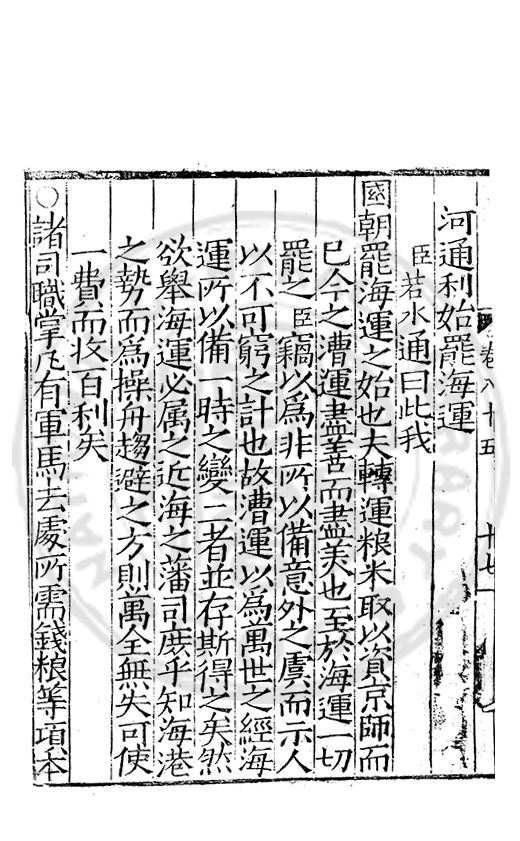 卷八十五 十七
河通利始罷海運
臣若水通曰此我
國朝罷海運之始也夫轉運粮米取以資京師而
已今之漕運盡善而盡美也至於海運一切
罷之臣竊以爲非所以備意外之虞而示人
以不可窮之計也故漕運以爲萬世之經海
運所以備一時之變二者並存斯得之矣然
欲舉海運必属之近海之藩司庻乎知海港
之勢而爲操舟趨避之方則萬全無失可使
一費而收百利矣
○諸司職掌凡有軍馬去處所需錢粮等項本